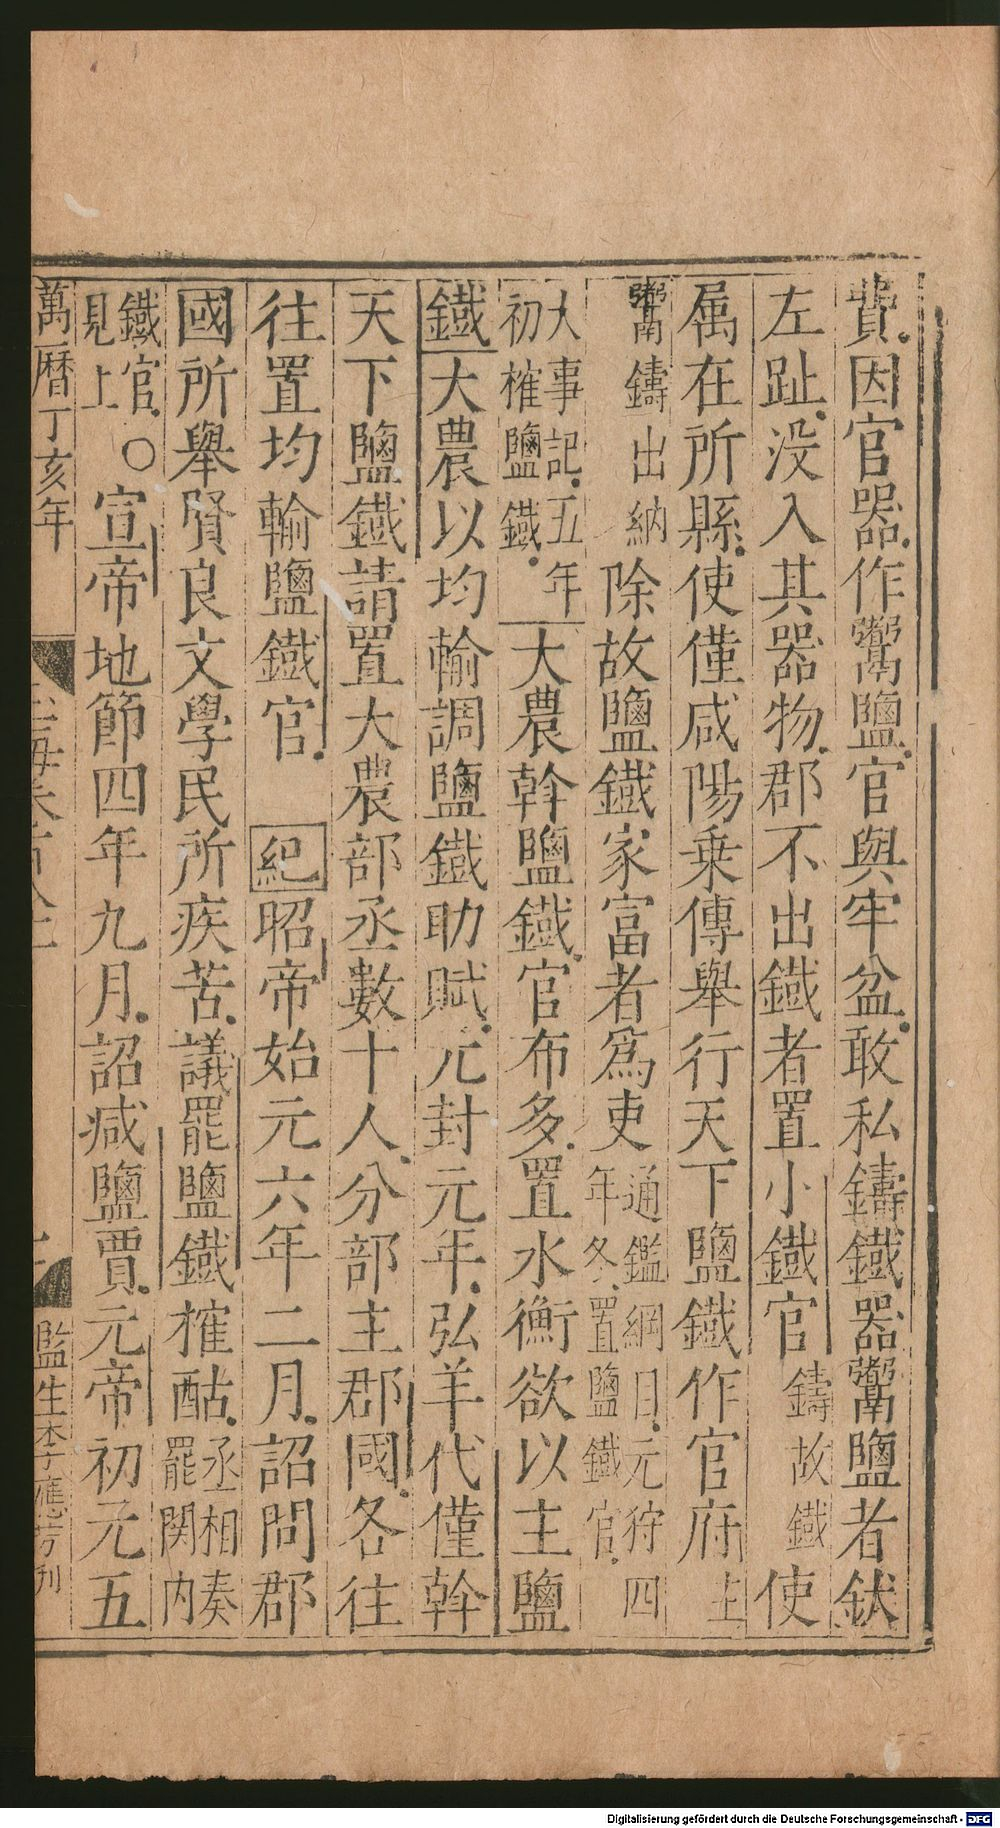 費因官器作鬻鹽官與牢盆敢私鑄鐵器鬻鹽者釱
左趾没入其器物郡不出鐵者置小鐵官鑄故鐵使
属在所縣使僅咸陽乗傳舉行天下鹽鐵作官府主
鬻鑄出納除故鹽鐵家富者爲吏通鑑綱目元狩四年冬置鹽鐵官
大事記五年初榷鹽鐵大農斡鹽鐵官布多置水衡欲以主鹽
鐵大農以均輸調鹽鐵助賦元封元年弘羊代僅斡
天下鹽鐵請置大農部丞數十人分部主郡國各往
往置均輸鹽鐵官 紀昭帝始元六年二月詔問郡
國所舉賢良文學民所疾苦議罷鹽鐵榷酤丞相奏罷関内
鐵官見上○宣帝地節四年九月詔减鹽賈元帝初元五
萬曆丁亥年 監生李應芳刊
Digitalisierung gefördert durch die Deutsche Forschungsgemeinschaft - DFG